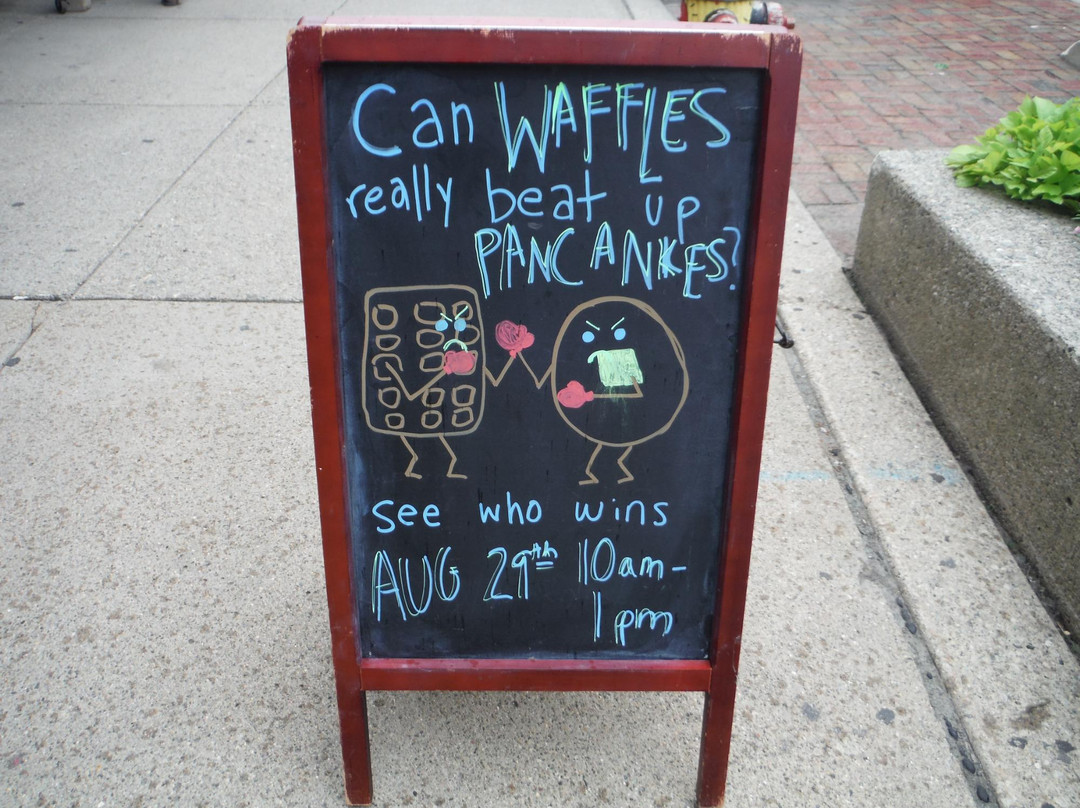 Can WAFFLES
really beat up
PANCANKES?
see who wins
AUG 29th 10am-
1pm